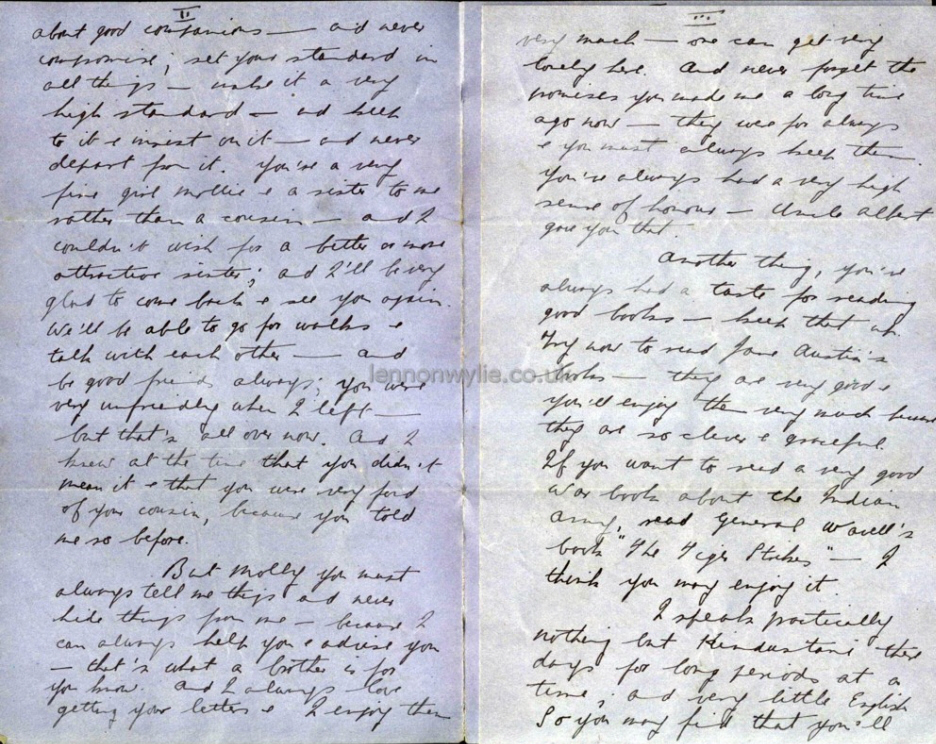 II
about good companions — and never
compromise; set your standard in
all things — make it a very
high standard — and keep
to it & insist on it — and never
depart from it. You're a very
fine girl Mollie & a sister to me
rather than a cousin — and I
couldn't wish for a better or more
attractive sister; and I'll be very
glad to come back & see you again.
We'll be able to go for walks &
talk with each other — and
be good friends always; you were
very unfriendly when I left —
but that's all over now. And I
knew at the time that you didn't
mean it & that you were very fond
of your cousin, because you told
me so before.
But Molly you must
always tell me things and never
hide things from me — because I
can always help you & advise you
— that's what a brother is for
you know. And I always love
getting your letters & I enjoy them
III
very much — one can get very
lonely here. And never forget the
promises you made me a long time
ago now — they were for always
& you must always keep them.
You've always had a very high
sense of honour — Uncle Albert
gave you that.
Another thing, you've
always had a taste for reading
good books — keep that up.
Try now to read Jane Austin's
books — they are very good &
you'll enjoy them very much because
they are so clever & graceful.
If you want to read a very good
war book about the Indian
Army, read General Wavell's
book "The Tiger Strikes" — I
think you may enjoy it.
I speak practically
nothing but Hindustani these
days for long periods at a
time; and very little English
So you may find that you'll
lennonwylie.co.uk